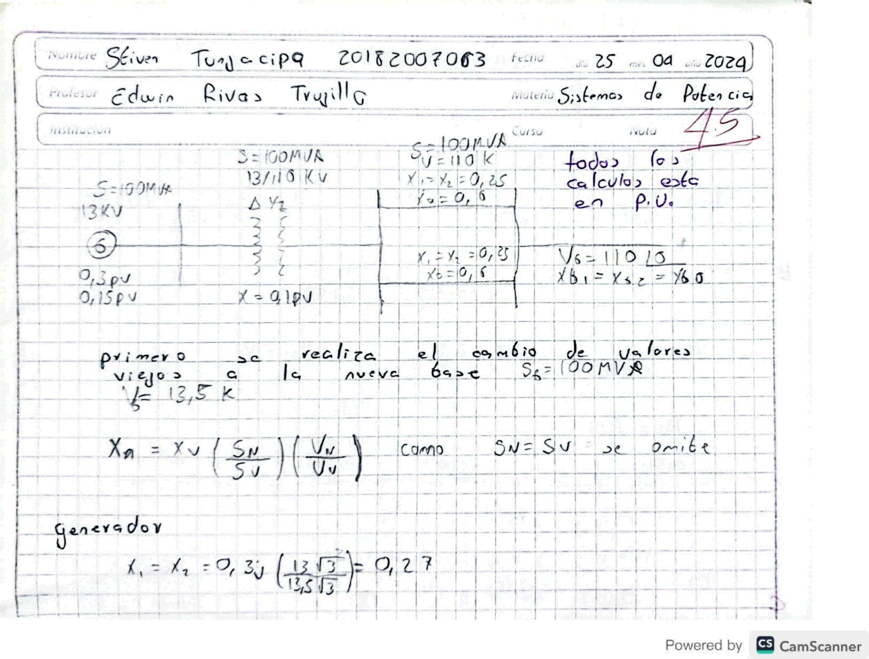 Nombre Stiven Tunjacipa 20182007063 Fecha día 25 mes 04 año 2024
Profesor Edwin Rivas Trujillo Materia Sistemas de Potencia
Institución Curso Nota 4.5
S=100MVA
13/110 KV
Δ Y
S=100MVA
V=110 K
X₁=X₂=0,25
X₀=0,6
todos los
calculos esta
en P.U.
S=100MVA
13KV
G
0,3pu
0,15pu
X=0,1pu
X₁=X₂=0,25
=0,6
=110
primero se realiza el cambio de valores
viejos a la nueva base S_b=100MVA
V_b= 13,5 K
X_n = X_v (S_N/S_v) (V_N/V_v) como SN=SV se omite
generador
X₁ = X₂ = 0,3j (13√3/13,5√3)² = 0,27
Powered by CS CamScanner